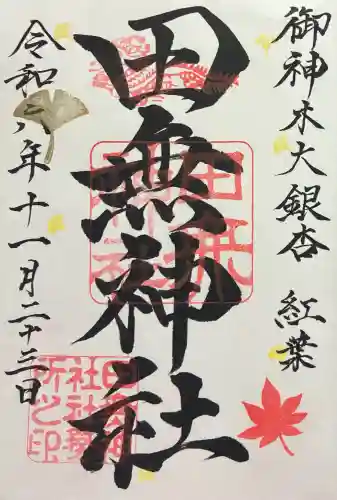 御神木大銀杏 紅葉
田無神社
令和六年十一月二十三日
田無神社
田無神社社務所之印